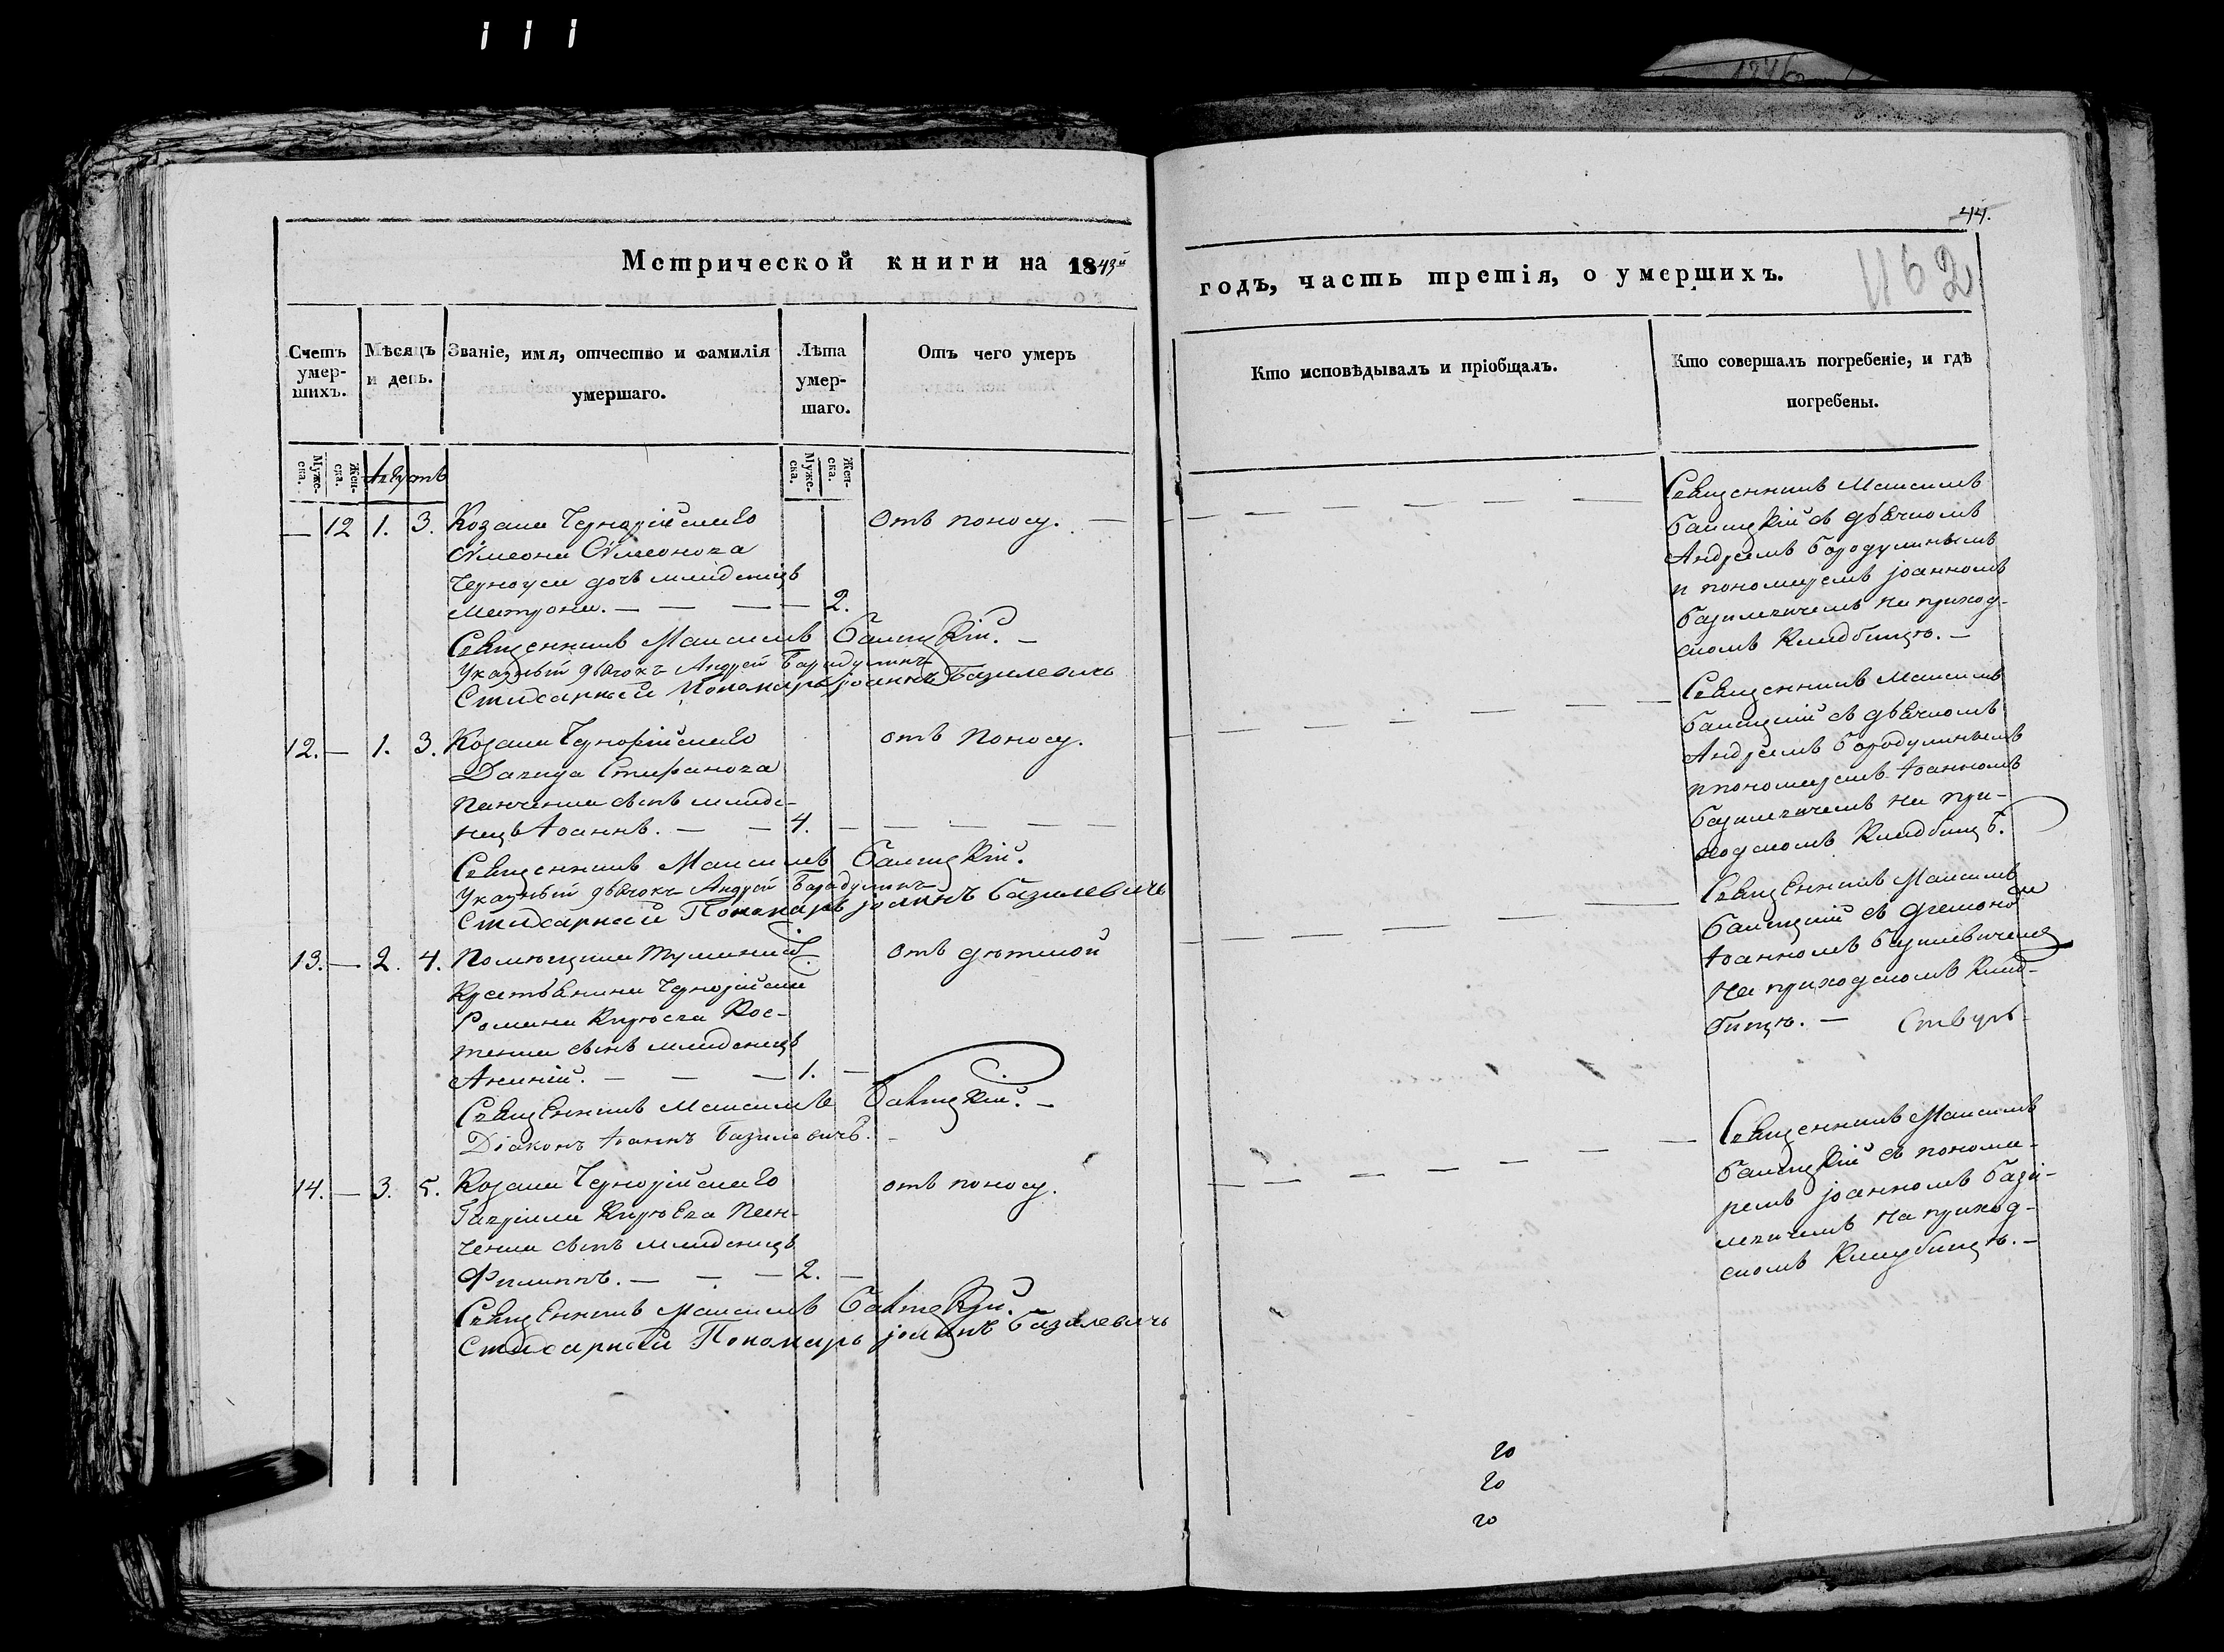 44.
1162
Метрической книги на 1843й
годъ, часть третія, о умершихъ.
Счетъ умер-шихъ.
Мѣсяцъ и день.
Званіе, имя, отчество и фамилія умершаго.
Лѣта умер-шаго.
Отъ чего умеръ
Кто исповѣдывалъ и пріобщалъ.
Кто совершалъ погребеніе, и гдѣ погребены.
Муже-ска.
Жен-ска.
Августъ
Муже-ска.
Жен-ска.
— 12 1. 3. Козака Чернорійскаго
Сѵмеона Сѵмеонова
Черноуса дочь младенецъ
Матрона. — — — — 2.
Отъ поносу. —
Священникъ Максимъ Балицкій. —
Указный дьячокъ Андрей Бародулинъ
Стихарный Пономарь Іоаннъ Базилевичъ
Священникъ Максимъ
Балицкій съ дьячкомъ
Андреемъ Бородулинымъ
и пономаремъ Іоанномъ
Базилевичемъ на приход-
скомъ Кладбищѣ. —
12. — 1. 3. Козака Чернорійскаго
Давида Стефанова
Панченка сынъ младе-
нецъ Іоаннъ. — — 4. —
отъ поносу.
Священникъ Максимъ Балицкій.
Указный дьячокъ Андрей Бародулинъ
Стихарный Пономарь Іоаннъ Базилевичъ
Священникъ Максимъ
Балицкій съ дьячкомъ
Андреемъ Бородулинымъ
и пономаремъ Іоанномъ
Базилевичемъ на при-
ходскомъ Кладбищѣ.
13. — 2. 4. Помѣщика
Крестьянина
Романа Кирѣева Кос-
тенка сынъ младенецъ
— — — 1. —
отъ дѣтской
Священникъ Максимъ Балицкій. —
Діаконъ Іоаннъ Базилевичъ. —
Священникъ Максимъ
Балицкій съ діакономъ
Іоанномъ Базилевичемъ
На приходскомъ Клад-
бищѣ. —
14. — 3. 5. Козака Чернорійскаго
Гавріила Кирѣева Пан-
ченка сынъ младенецъ
Филиппъ. — — — 2. —
отъ поносу.
Священникъ Максимъ Балицкій.
Стихарный Пономарь Іоаннъ Базилевичъ
Священникъ Максимъ
Балицкій съ понома-
ремъ Іоанномъ Бази-
левичемъ на приход-
скомъ Кладбищѣ. —